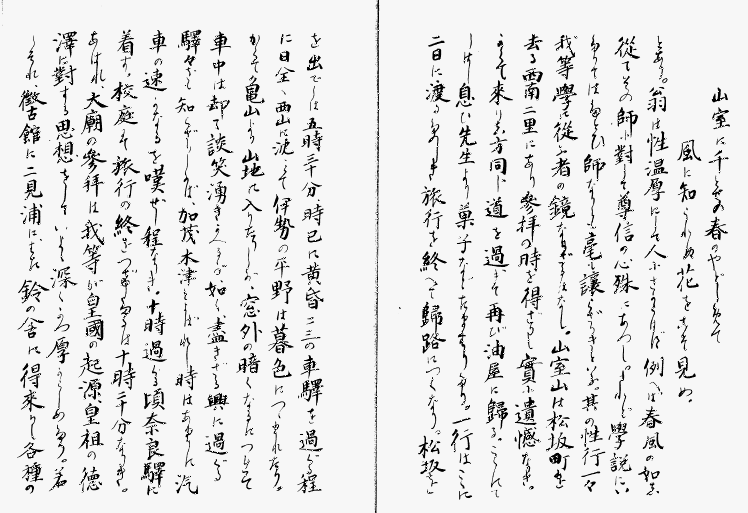 山室に千とせの春のやどしめて
風に知られぬ花をこそ見め
とある。翁は性温厚にして人にさからはず例へば春風の如し
従てその師に對して尊信の心殊にあつし。されど學説に
ては師なりとも毫も讓らざりきといふ。其の性行一々
我等學に從ふ者の鏡ならざるはなし。山室山は松坂町を
去る西南二里にあり參拜の時を得ざりしは實に遺憾なりき。
かくて來りし方同じ道を過ぎて再び油屋に歸る。こゝにて
しばし息ひ先生より菓子などたまはりぬ。一行はこゝに
二日に渡る旅行を終へて歸路につくなり。松坂
を出でしは五時三十分、時已に黄昏二三の車驛を過る程
に日全く西山に沈みて伊勢の平野は暮色につゝまれたり。
かくて亀山より山地に入りたりしが、窓外の暗くなるにつれて
車中は却て談笑湧きかへるが如く盡きざる興に過る
驛々をも知らざりしが、加茂木津とよばれし時はあまりに汽
車の速かなるを嘆ぜし程なりき。十時過る頃奈良驛に
着す。校庭にて旅行の終をつげしは十時三十分なりき。
あはれ、大廟の參拜は我等が皇國の起源皇祖の德
澤に對する思想をしていよいよ深くかつ厚からしめたり。若
しそれ、徴古館に二見浦にはた鈴の舍に得來りし各種の